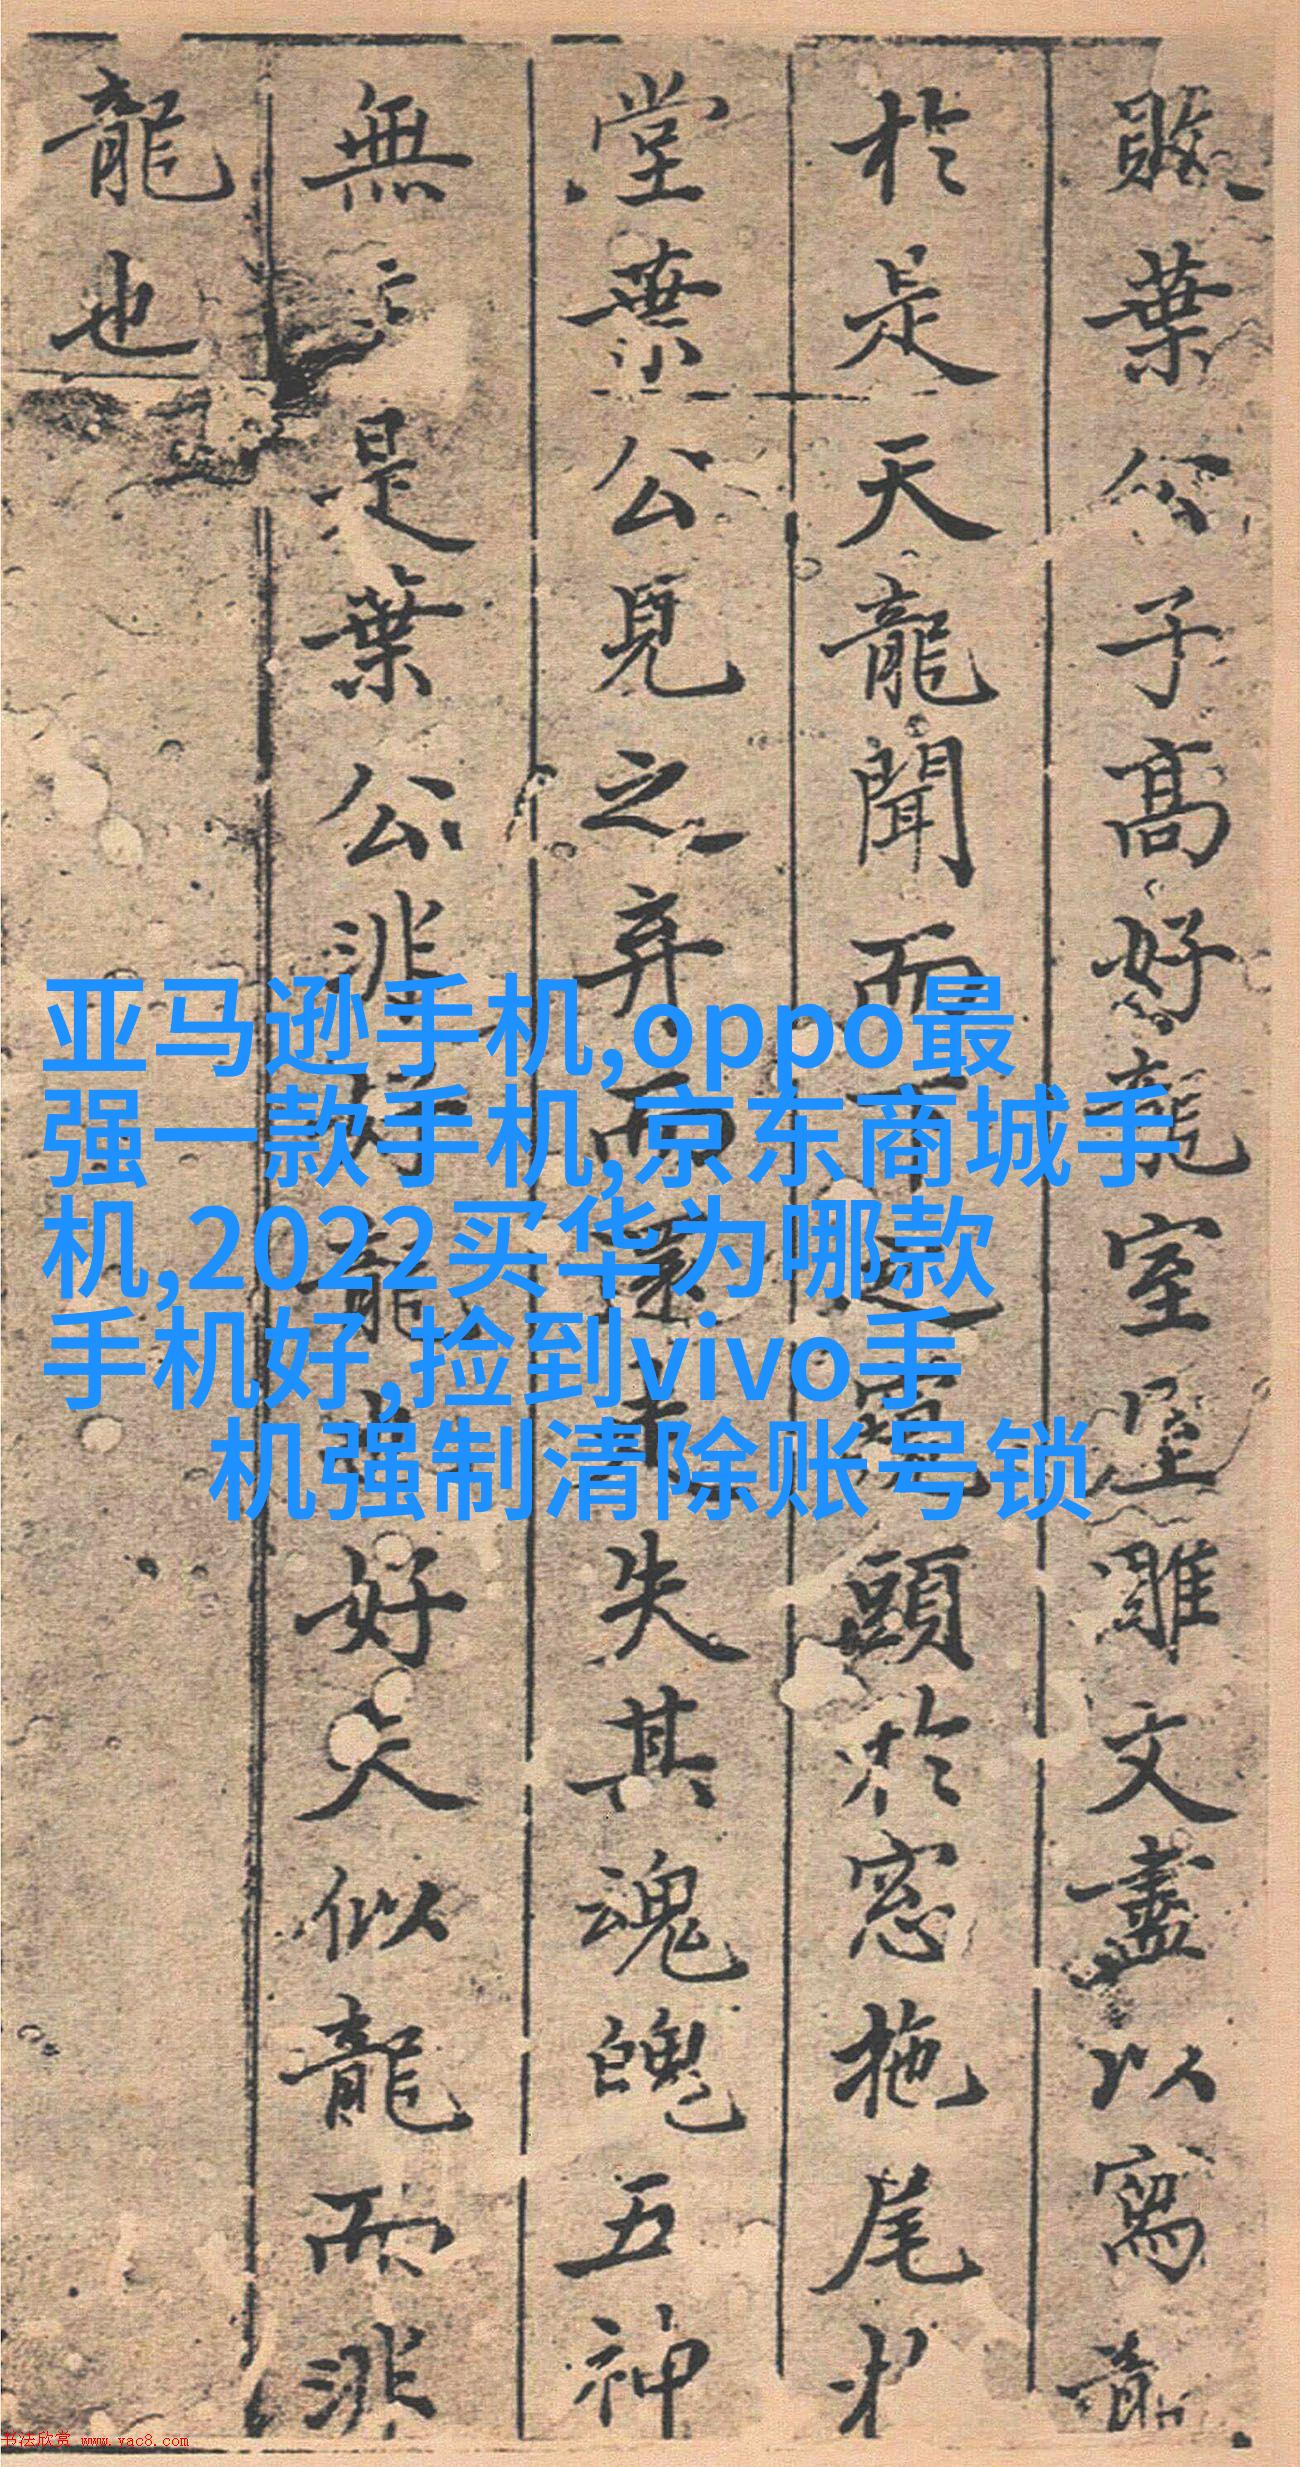 敗葉公子高好龍室屋雕文盡以寫龍
於是天龍聞而下之窺頭於窓拖尾於
堂葉公見之弃而還走失其魂魄五神
無主是葉公非好龍也好夫似龍而非
龍也
亚马逊手机,oppo最
强一款手机,京东商城手
机,2022买华为哪款
手机好,捡到vivo手
机强制清除账号锁
书法欣赏 www.yac8.com